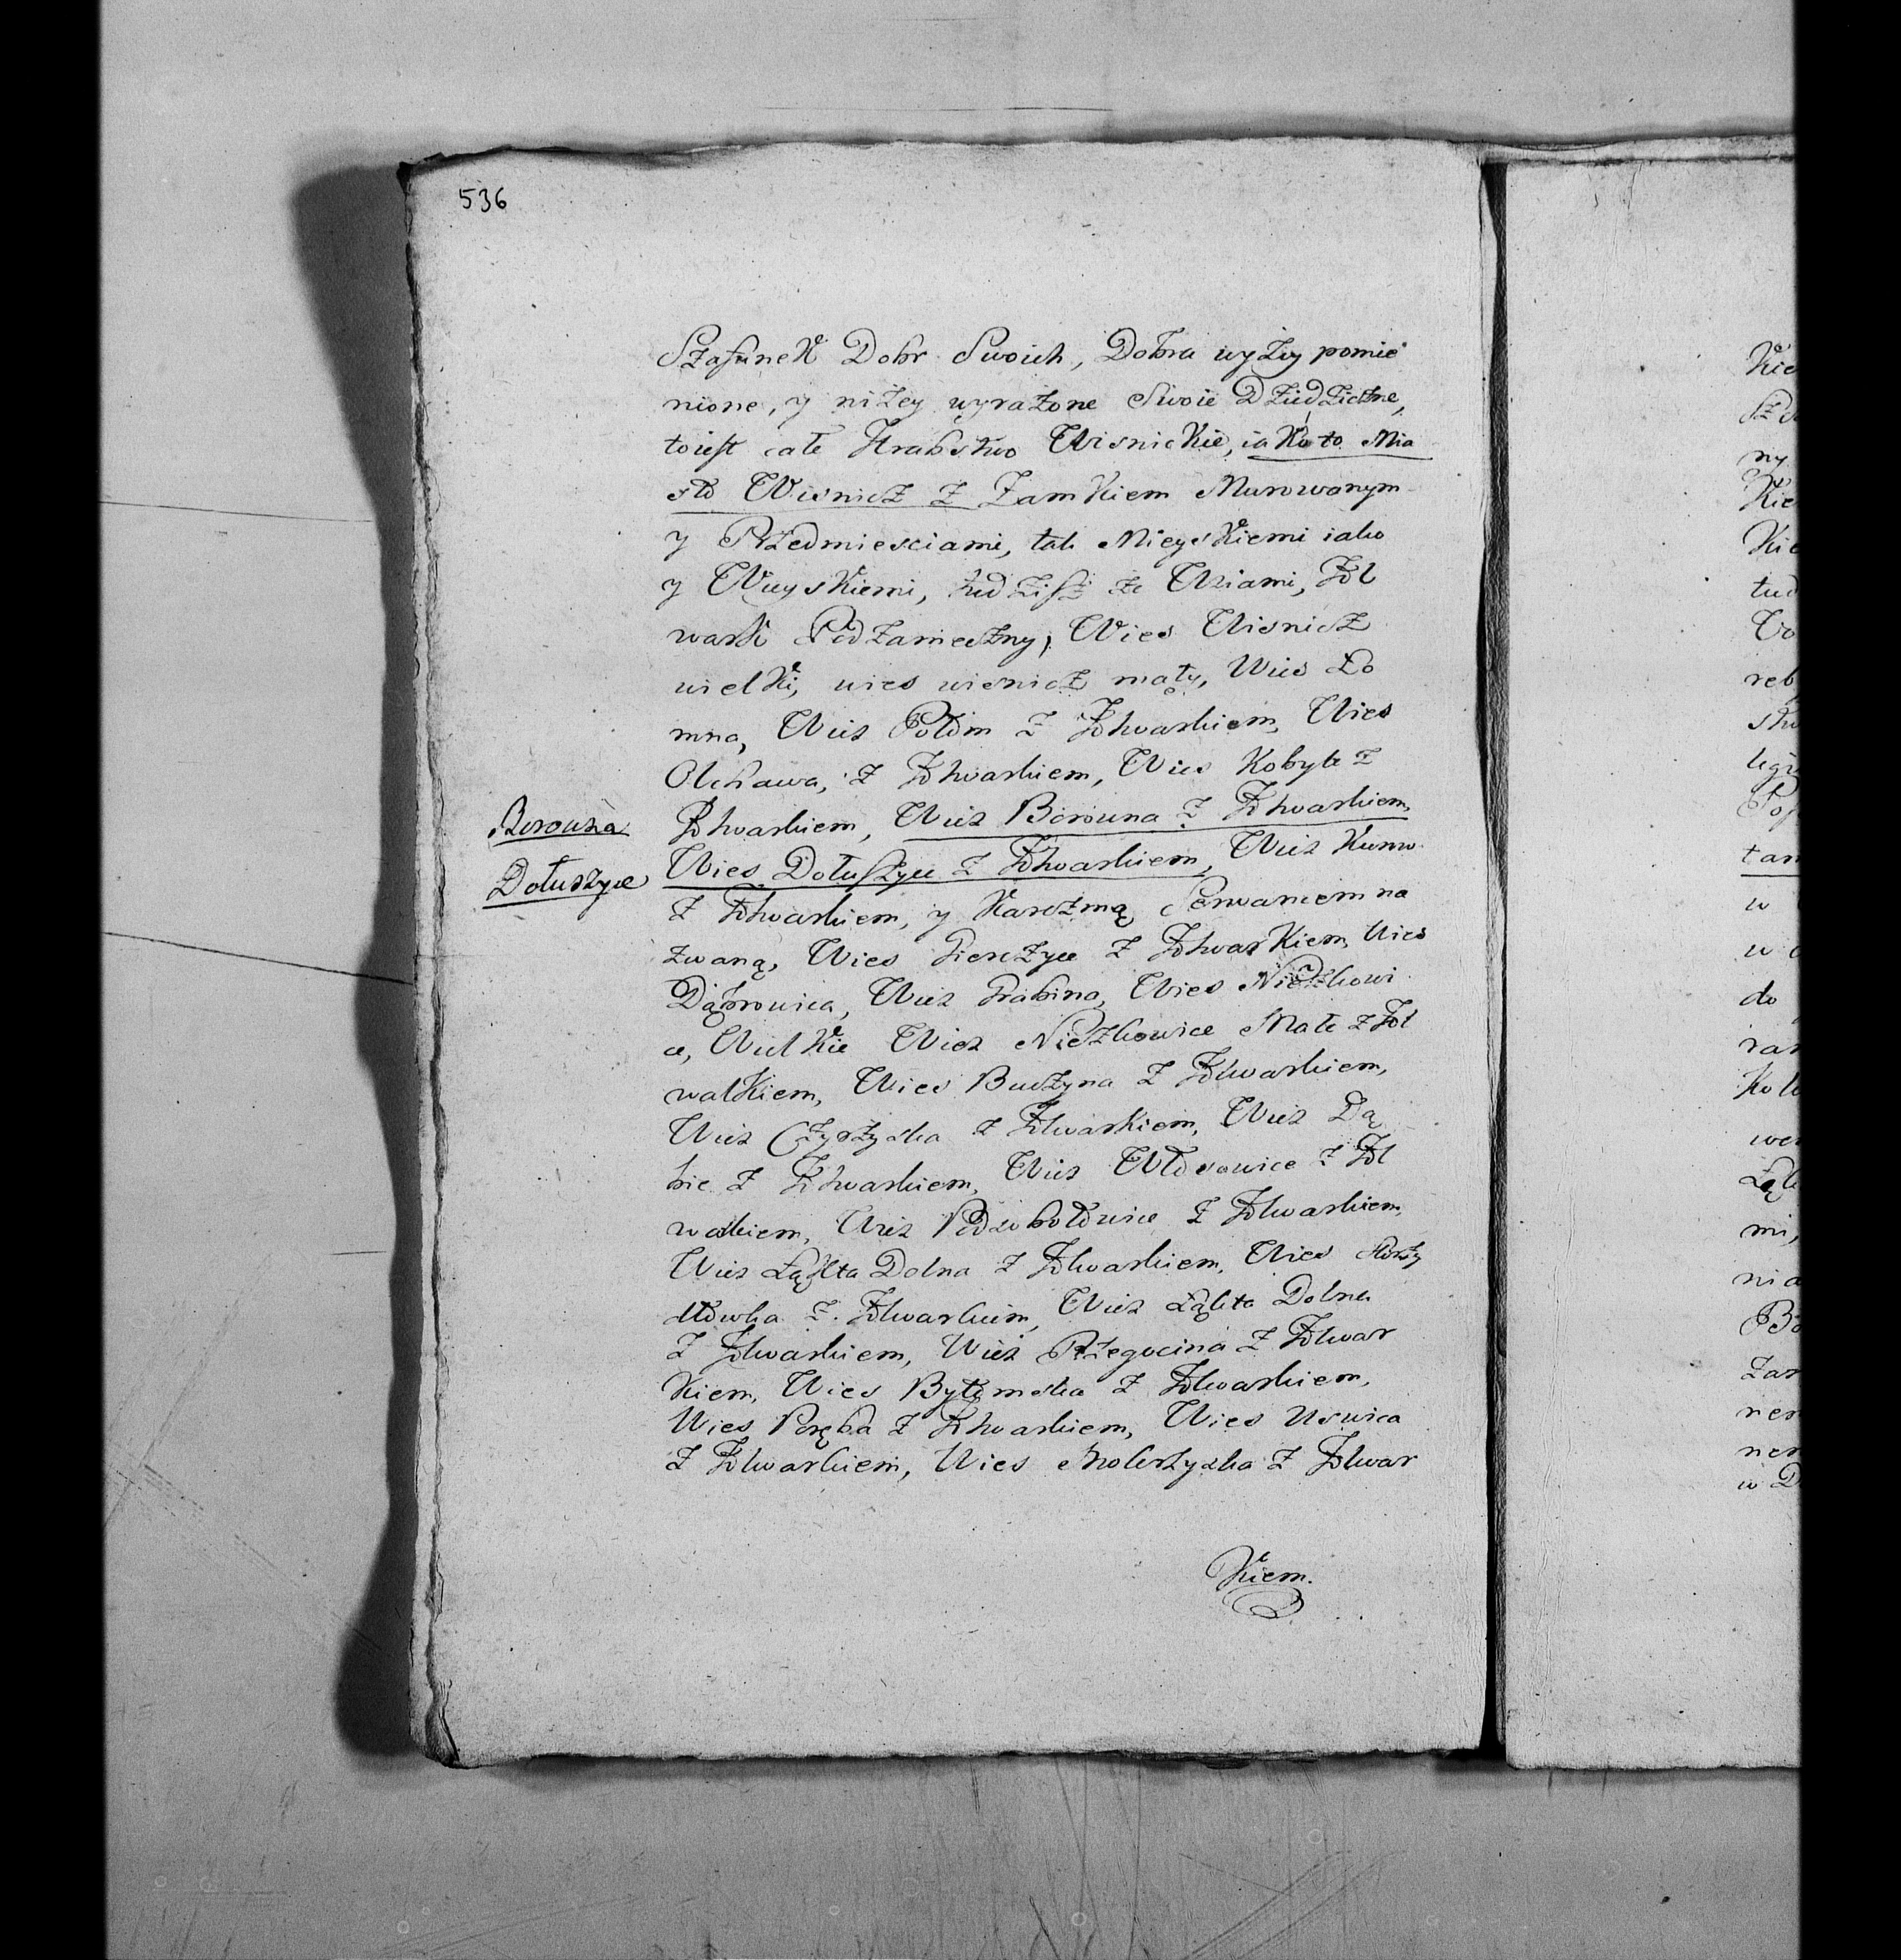 536
Szafunek Dobr Swoich, Dobra wyżey pomie
nione, y niżey wyrażone Swoie Dziedziczne,
toiest całe Hrabstwo Wisnickie, iako to Mia
sto Wisnicz z Zamkiem Murowanym
y Przedmiesciami, tak Mieyskiemi iako
y Wieyskiemi, tudziesz ze Wsiami, Fol
wark Podzameczny, Wies Wisnicz
wielki, wies wisnicz mały, Wies Ło
mna, Wies Połom z Folwarkiem, Wies
Olchawa, z Folwarkiem, Wies Kobyle z
Folwarkiem, Wies Borowna z Folwarkiem,
Borowna
Wies Dołuszyce z Folwarkiem, Wies Kurow
Dołuszyce
z Folwarkiem, y Karczmą Serwaniem na
zwaną, Wies Gierczyce z Folwarkiem, Wies
Dąbrowica, Wies Grabina, Wies Nieszkowi
ce, Wielkie Wies Nieszkowice Małe z Fol
walkiem, Wies Buczyna z Folwarkiem,
Wies Czyrzyczka z Folwarkiem, Wies Dą
bie z Folwarkiem, Wies Włosowice z Fol
warkiem, Wies z Folwarkiem,
Wies Łąkta Dolna z Folwarkiem, Wies
z Folwarkiem, Wies Łąkta Dolna
z Folwarkiem, Wies Rzegocina z Folwar
kiem, Wies Bytomska z Folwarkiem,
Wies Poręba z Folwarkiem, Wies Uswica
z Folwarkiem, Wies z Folwar
Kiem.
Kie
ny
Kie
Kie
tud
reb
tan
w
do
ran
mi,
nia
Zar
ner
ner
w D